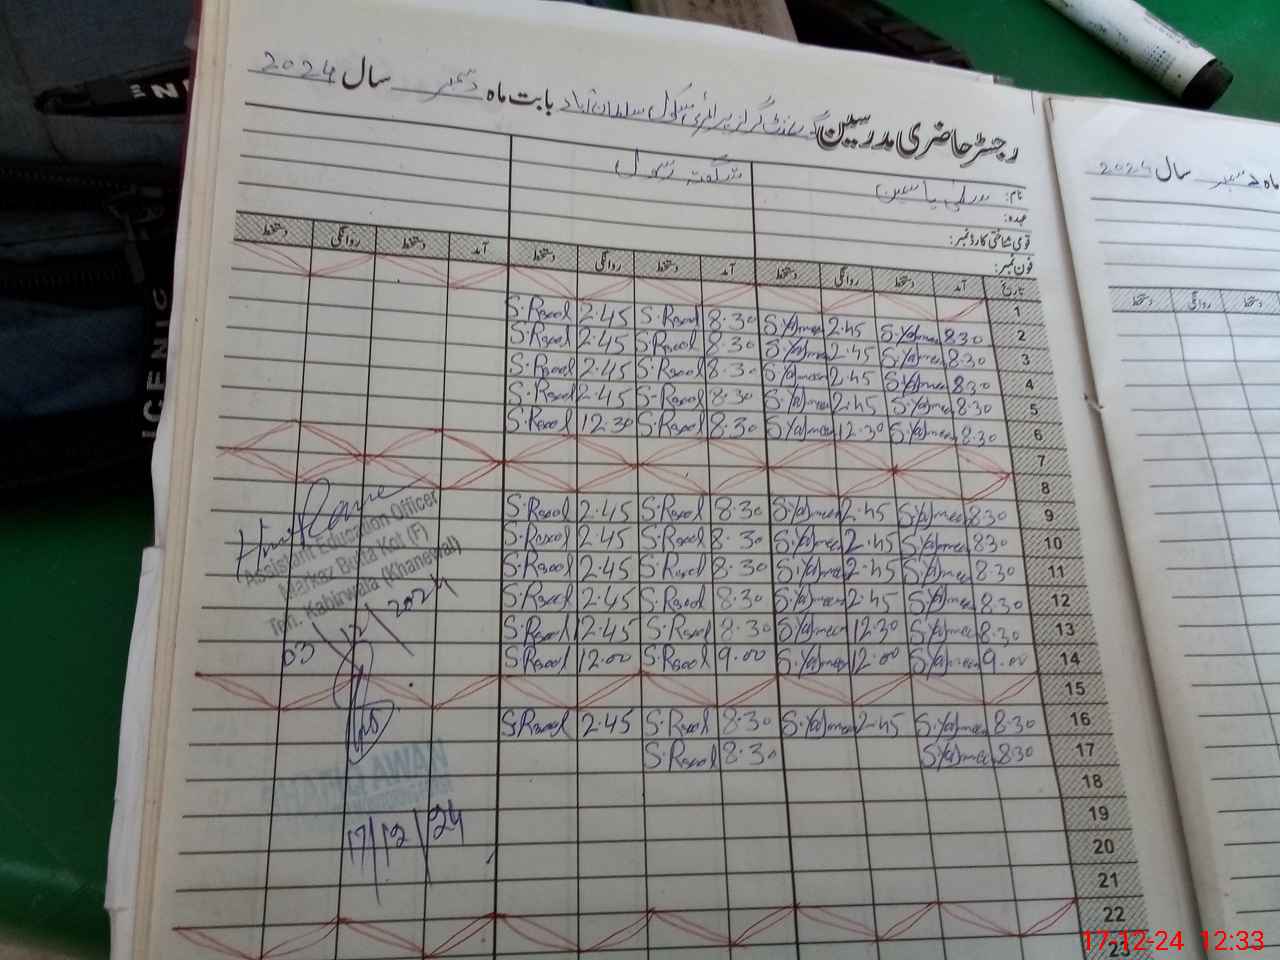 رجسٹر حاضری مدرسین گورنمنٹ گرلز پرائمری سکول سلطان آباد بابت ماہ دسمبر سال 2024
نام: یاسمین شگفتہ رسول
عہدہ:
قومی شناختی کارڈ نمبر:
فون نمبر:
تاریخ آمد دستخط روانگی دستخط آمد دستخط روانگی دستخط آمد دستخط روانگی دستخط
1
2 8.30 S.Yasmeen 2.45 S.Yasmeen 8.30 S.Rasool 2.45 S.Rasool
3 8.30 S.Yasmeen 2.45 S.Yasmeen 8.30 S.Rasool 2.45 S.Rasool
4 8.30 S.Yasmeen 2.45 S.Yasmeen 8.30 S.Rasool 2.45 S.Rasool
5 8.30 S.Yasmeen 2.45 S.Yasmeen 8.30 S.Rasool 2.45 S.Rasool
6 8.30 S.Yasmeen 12.30 S.Yasmeen 8.30 S.Rasool 12.30 S.Rasool
7
8
9 8.30 S.Yasmeen 2.45 S.Yasmeen 8.30 S.Rasool 2.45 S.Rasool
10 830 S.Yasmeen 2.45 S.Yasmeen 8.30 S.Rasool 2.45 S.Rasool
11 8.30 S.Yasmeen 2.45 S.Yasmeen 8.30 S.Rasool 2.45 S.Rasool
12 8.30 S.Yasmeen 2.45 S.Yasmeen 8.30 S.Rasool 2.45 S.Rasool
13 8.30 S.Yasmeen 12.30 S.Yasmeen 8.30 S.Rasool 2.45 S.Rasool
14 9.00 S.Yasmeen 12.00 S.Yasmeen 9.00 S.Rasool 12.00 S.Rasool
15
16 8.30 S.Yasmeen 2.45 S.Yasmeen 8.30 S.Rasool 2.45 S.Rasool
17 8.30 S.Yasmeen 8.30 S.Rasool
18
19
20
21
22
23
Assistant Education Officer
Markaz Buda Kot (F)
Teh. Kabirwala (Khanewal)
03/12/2024
17/12/24
ماہ دسمبر سال 2024
دستخط روانگی دستخط
17-12-24 12:33